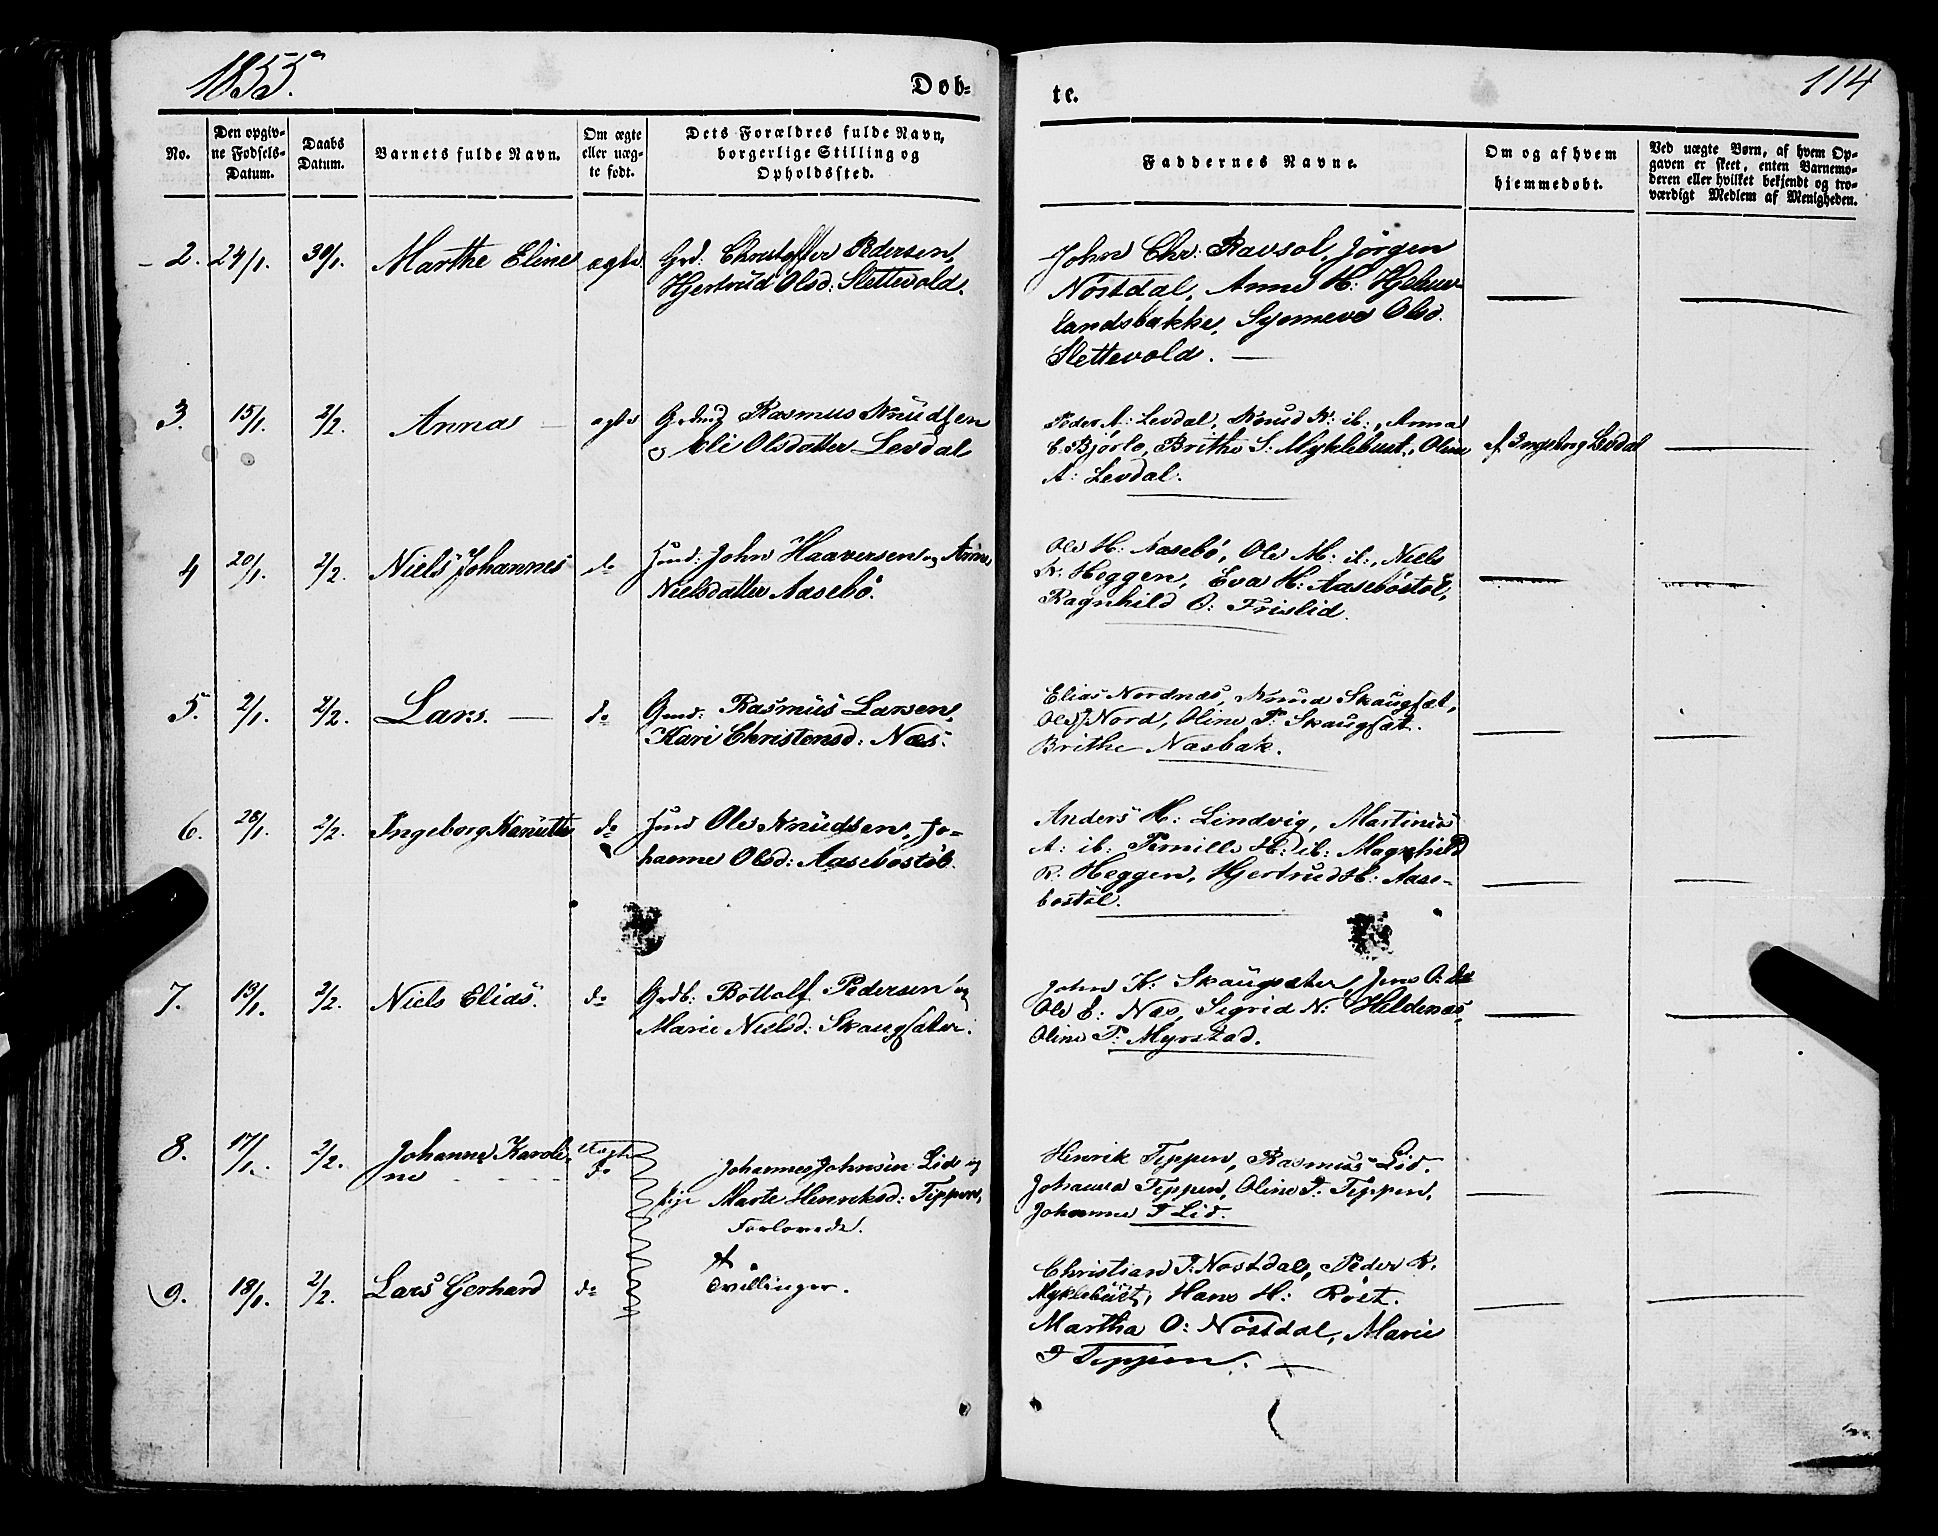 1855.
Døb-
te.
114
No.
Den opgiv-
ne Fødsels-
Datum.
Daabs
Datum.
Barnets fulde Navn.
Om ægte
eller uæg-
te født.
Dets Forældres fulde Navn,
borgerlige Stilling og
Opholdssted.
Faddernes Navne.
Om og af hvem
hjemmedøbt.
Ved uægte Børn, af hvem Op-
gaven er skeet, enten Barnemo-
deren eller hvilket bekjendt og tro-
værdigt Medlem af Menigheden.
2. 24/1. 30/1. Marthe Eline ægte Grd: Christoffer Pedersen,
Hjertrud Olsd: Slettevold.
John Chr: Ravsol, Jörgen
Nöstdal, Anne H: Hjelme-
landsbakke, Synneve Olsd.
Slettevold.
3. 15/1. 2/2. Anna ægte Rasmus Knudsen
Eli Olsdatter Levdal
Peder A: Levdal, Knud K: ib:, Anna
E: Bjørlo, Brithe S: Myklebust, Oline
A: Levdal.
af Ingeborg Levdal
4 20/1. 2/2. Niels Johannes do Huusd: John Haaversen og Anne
Nielsdatter Aasebö.
Ole H: Aasebö, Ole M: ib:, Niels
K: Heggen, Eva H: Aaseböstöl,
Ragnhild O: Frislid.
5. 2/1. 2/2. Lars. do Gmd: Rasmus Larsen,
Kari Christensd: Næs.
Elias Nordnæs, Knud Skaugsæt,
Nord, Oline P: Skaugsæt.
Brithe Næsbak.
6. 28/1. 2/2. Ingeborg do Huusd Ole Knudsen, Jo-
hanne Olsd: Aasebøstöl.
Anders H: Lindvig, Martinus
A: ib: Pernille H: ib: Magnhild
R: Heggen, Hjertrud H: Aase-
bøstöl.
7. 13/1. 2/2. Niels Elias. do Grdb: Bottolf Pedersen og
Marie Nielsd: Skaugsæter.
John K: Skaugsæter, Jens O: do
Ole E: Næs, Sigrid N: Hildenæs,
Oline P: Myrstad.
8. 17/1. 2/2. Johanne Karoli-
ne Uægte
do Johannes Johnsen Lid og
Pige Marte Henriksd: Teppen,
Forlovede.
Henrik Teppen, Rasmus Lid.
Johanna Teppen, Oline T: Teppen,
Johanne T Lid.
9. 18/1. 2/2. Lars Gerhard do Tvillinger.
Christian T: Nöstdal, Peder R.
Myklebust, Hans H: Röst.
Martha O: Nöstdal, Marie
T Teppen.